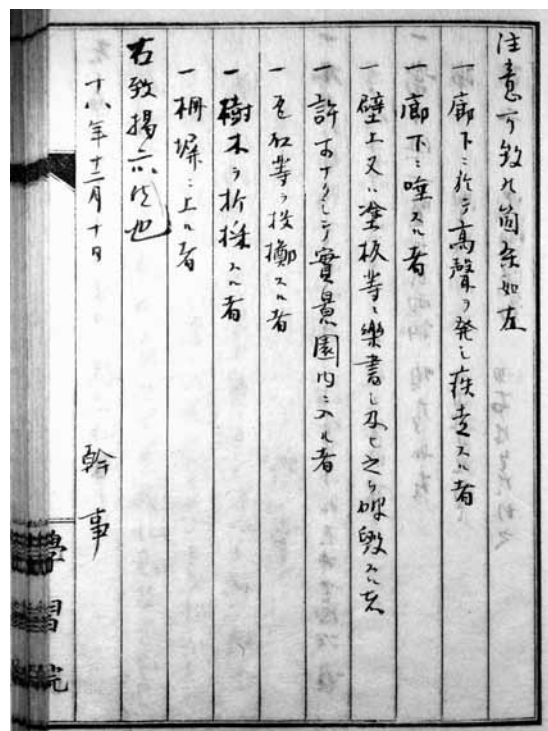 注意可致ル箇条如左
一廊下ニ於テ高聲ヲ発シ疾走スル者
一廊下ニ唾スル者
一壁上又ハ塗板等ニ樂書シ及ヒ之ヲ砕毀スル者
一許可ナクシテ實景園内ニ入ル者
一瓦石等ヲ投擲スル者
一樹木ヲ折採スル者
一柵塀ニ上ル者
右致揚示候也
十八年十二月十日
幹事
學習院